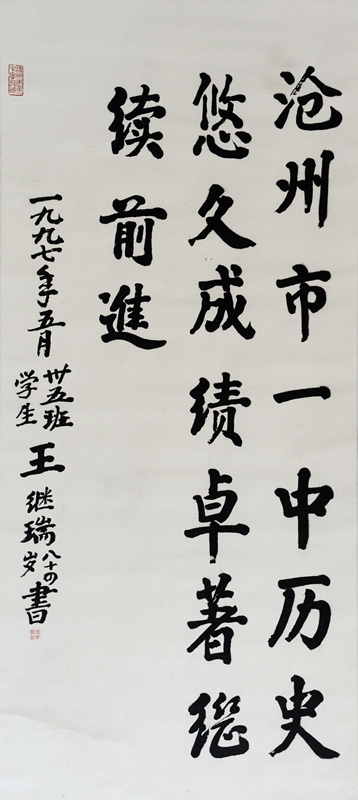 沧州市一中历史
悠久成绩卓著继
续前進
一九九七年五月
卅五班
学生
王继瑞八十四岁書